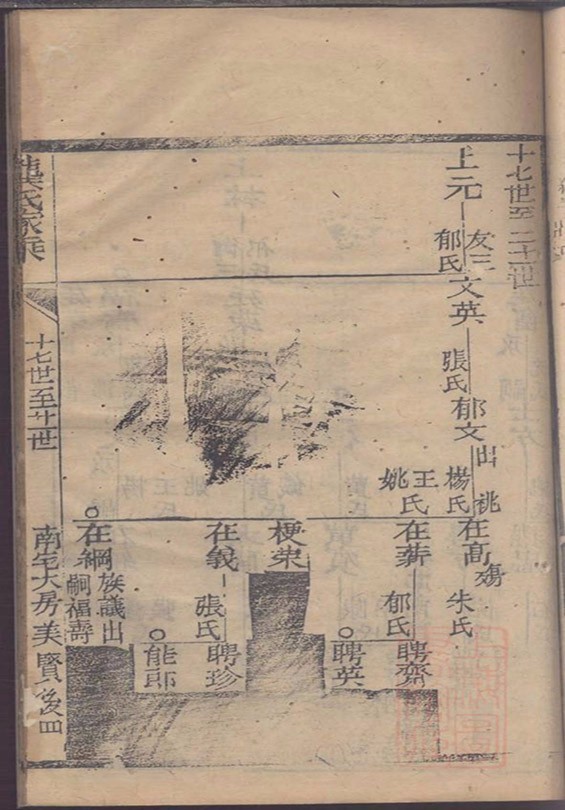 十七世至二十一世
上元
友三
郁氏
文英
張氏
郁文
出
祧
楊氏
王氏
姚
在高
殤
朱氏
在薪
郁氏
聘齋
聘英
梗柴
在義
張氏
聘珍
能郎
在綱
族議出
嗣福壽
氏家乘
十七世至廿一世
南宅大房美賢後四